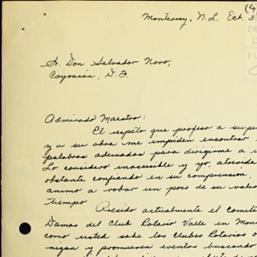 (4
Monterrey, N.L. Oct. 3
Sr. Don Salvador Novo,
Coyoacán, D.F.
Admirado Maestro:
El respeto que profeso a su pers
y a su obra me impiden encontrar
palabras adecuadas para dirigirme a u
Lo considero inaccesible y yo, atosada
obstante confiando en su comprensión,
animo a robar un poco de su valio
tiempo
Presido actualmente el comité
Damas del Club Rotario Valle en Mon
como usted sabe los Clubes Rotarios o
nizan y promueven eventos buscando